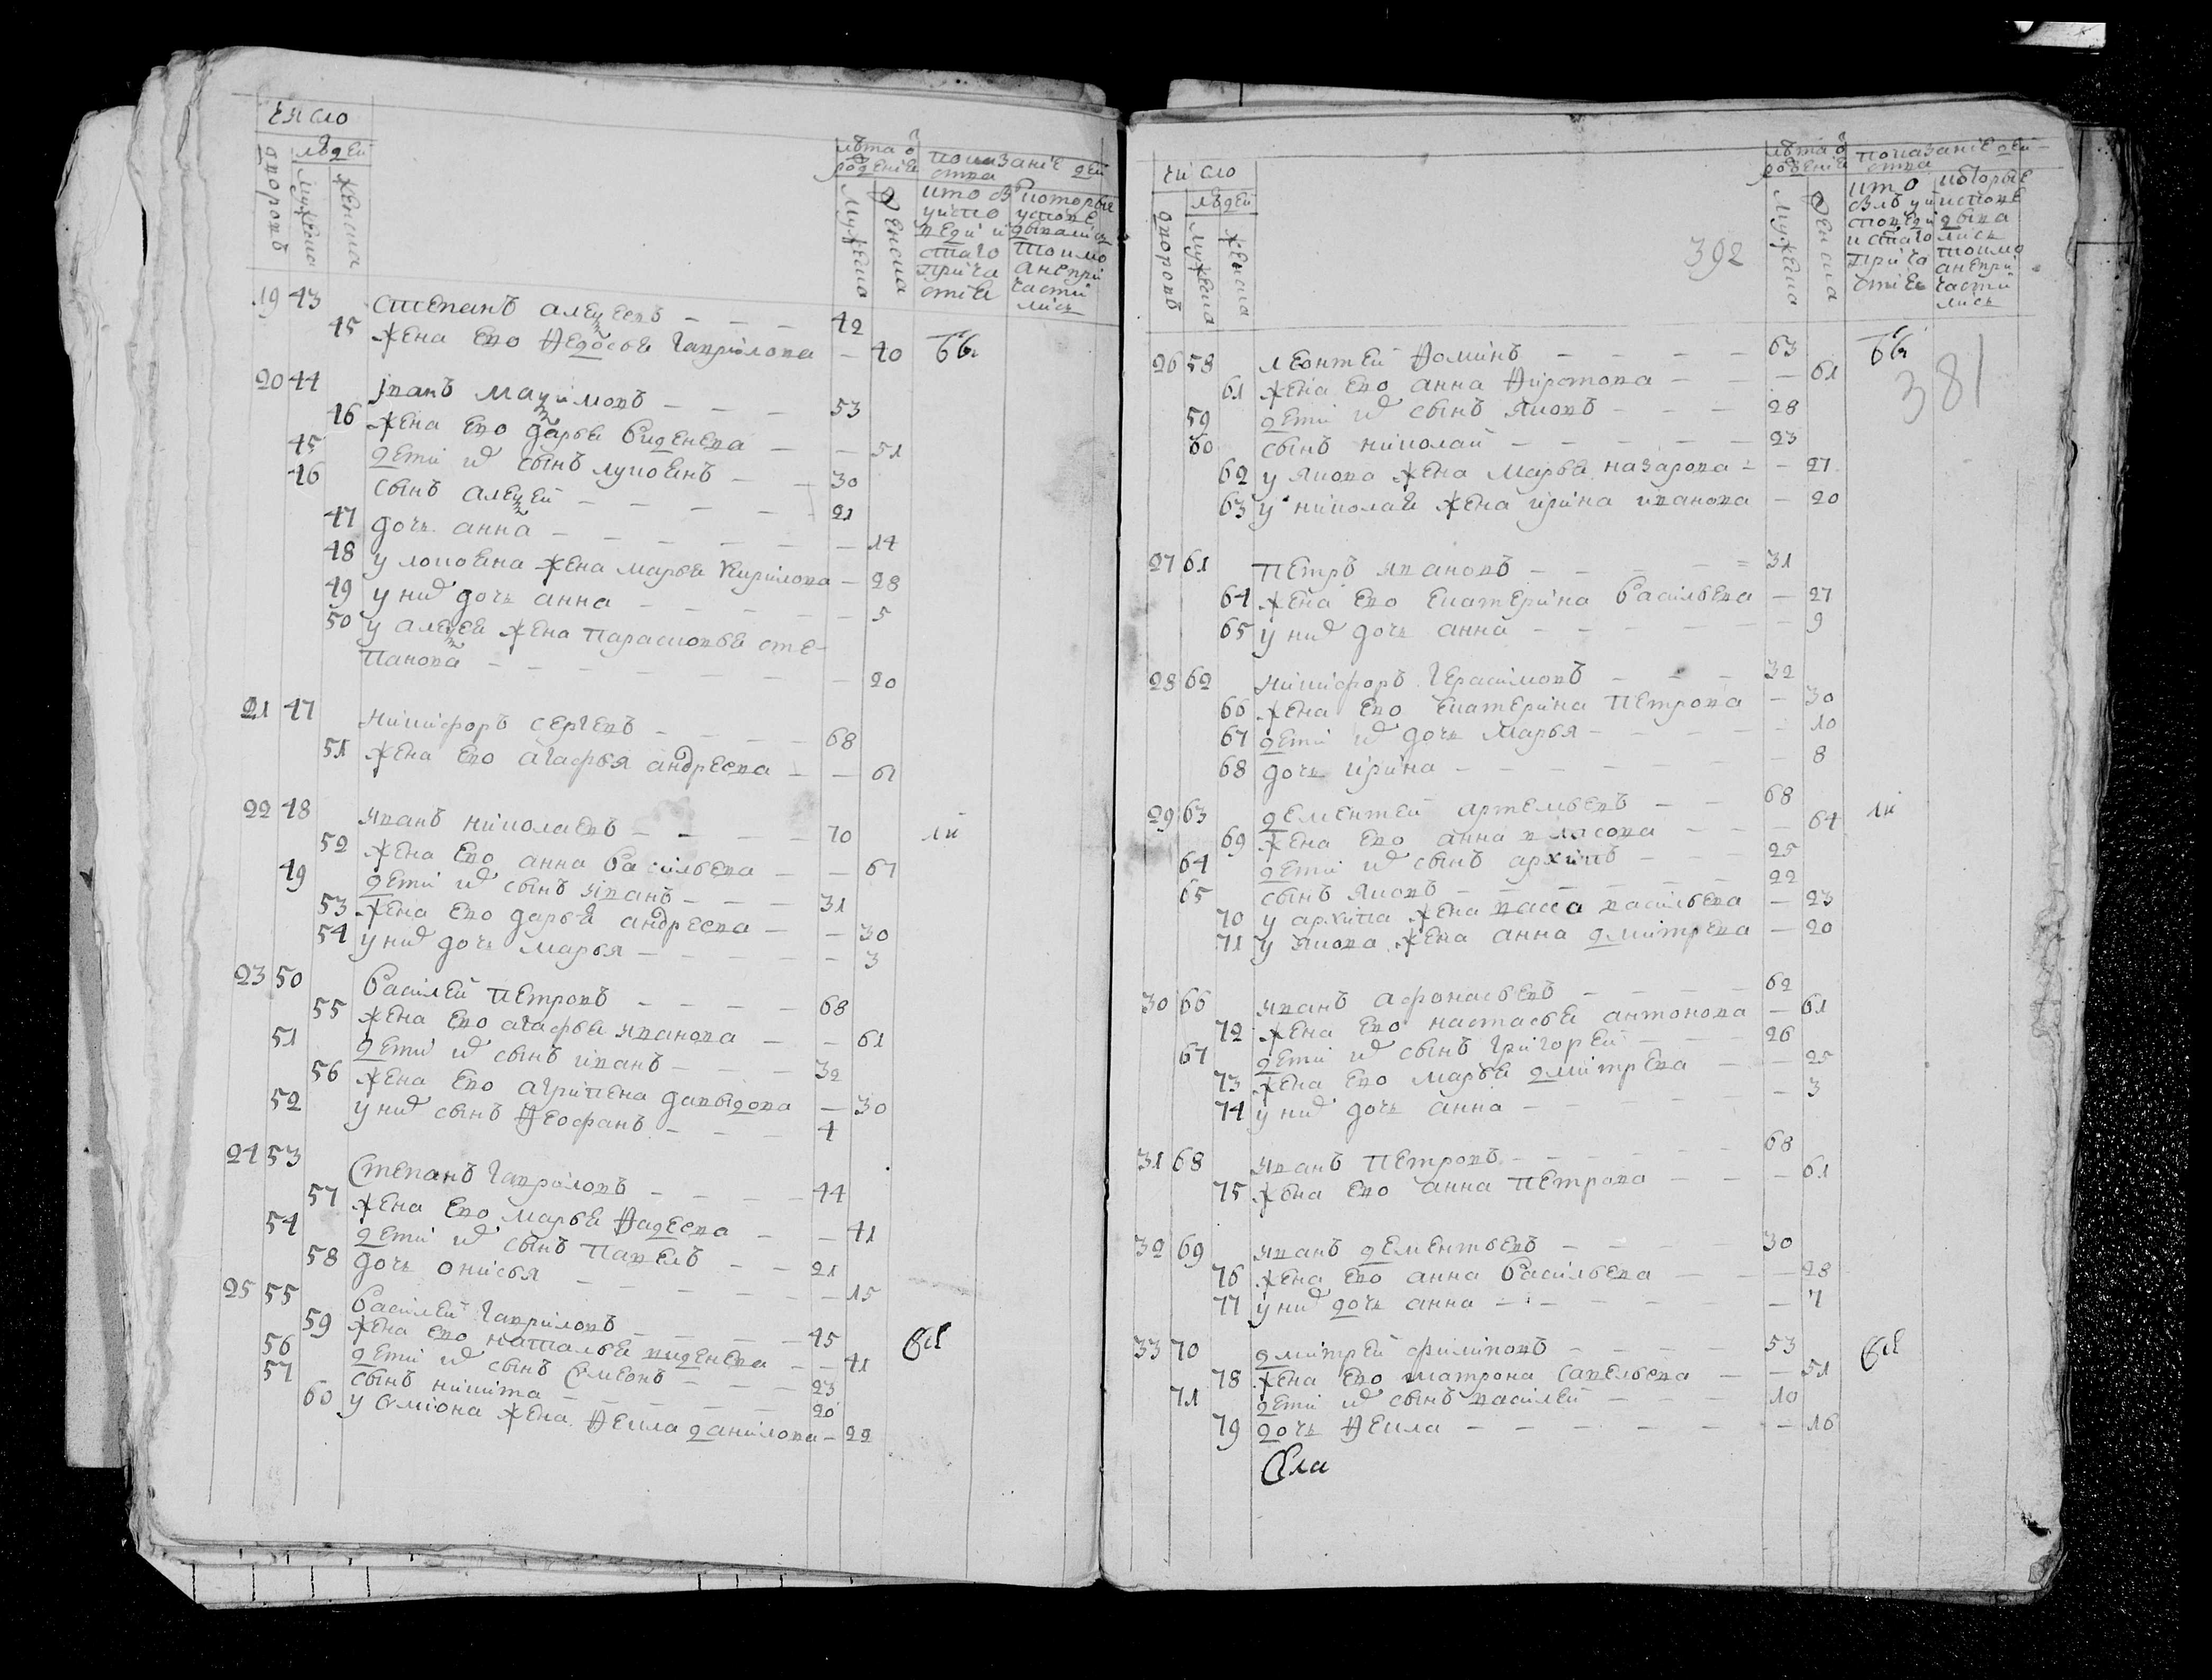 число
дворовъ
людей
мужеска
женска
лѣта ѿ рождения
мужеска
женска
показание дейс
ства
кто
которые
19 43 степанъ алеѯеевъ — — — 42
45 жена ево Ѳедосья гаврилова — 40 бы
20 44 иванъ маѯимовъ — — — 53
46 жена ево дарья Авденева — — 51
45 дети их сынъ лукоянъ — — 30
46 сынъ алеѯей — — — — — 21
47 дочь анна — — — — — — 14
48 у локояна жена марья кирилова — 28
49 у них дочь анна — — — — — 5
50 у алеѯея жена парасковья сте-
панова — — — — — — — 20
21 47 никифоръ сергеевъ — — — — 68
51 жена ево агафья андреева — — 61
22 48 иванъ николаевъ — — — — 70
52 жена ево анна васильева — — 67
49 дети их сынъ иванъ — — — 31
53 жена ево дарья андреева — — 30
54 у них дочь марья — — — — — 3
23 50 василей петровъ — — — — 68
55 жена ево агафья иванова — — 61
51 дети их сынъ иванъ — — — 32
56 жена ево агрипена давыдова — 30
52 у них сынъ Ѳеофанъ — — — 4
24 53 Степанъ гавриловъ — — — — 44
57 жена ево марья Ѳадеева — — 41
54 дети их сынъ павелъ — — 21
58 дочь онисья — — — — — — 15
25 55 василей гавриловъ — — — — 45
59 жена ево наталья виденева — — 41
56 дети их сынъ Симеонъ — — — 23
57 сынъ никита — — — — — — 20
60 у симиона жена Ѳекла данилова — 22
число
дворовъ
людей
мужеска
женска
392
лѣта ѿ рождения
мужеска
женска
показание дейс-
ства
кто
которые
381
26 58 леонтей Ѳоминъ — — — — — 63 бы
61 жена ево анна Ѳирстова — — — 61
59 дети их сынъ яковъ — — — 28
60 сынъ николай — — — — — 23
62 у якова жена марья назарова — — 27
63 у николая жена ирина иванова — 20
27 61 петръ ивановъ — — — — — 31
64 жена ево екатерина васильева — 27
65 у них дочь анна — — — — — — 9
28 62 никифоръ герасимовъ — — — 32
66 жена ево екатерина петрова — 30
67 дети их дочь марья — — — — — 10
68 дочь ирина — — — — — — — 8
29 63 дементей артемьевъ — — 68
69 жена ево анна власова — — — 64
64 дети их сынъ архипъ — — — 25
65 сынъ яковъ — — — — — — 22
70 у архипа жена васса васильева — 23
71 у якова жена анна дмитрева — 20
30 66 иванъ афонасьевъ — — — — 62
72 жена ево настасья антонова — 61
67 дети их сынъ григорей — — — 26
73 жена ево марья дмитрева — — 25
74 у них дочь анна — — — — — — 3
31 68 иванъ петровъ — — — — — — 68
75 жена ево анна петрова — — — 61
32 69 иванъ дементьевъ — — — — 30
76 жена ево анна васильева — — — 28
77 у них дочь анна — — — — — — 7
33 70 дмитрей филиповъ — — — — 53
78 жена ево матрона савельева — — 51
71 дети их сынъ василей — — — 10
79 дочь Ѳекла — — — — — — — 16